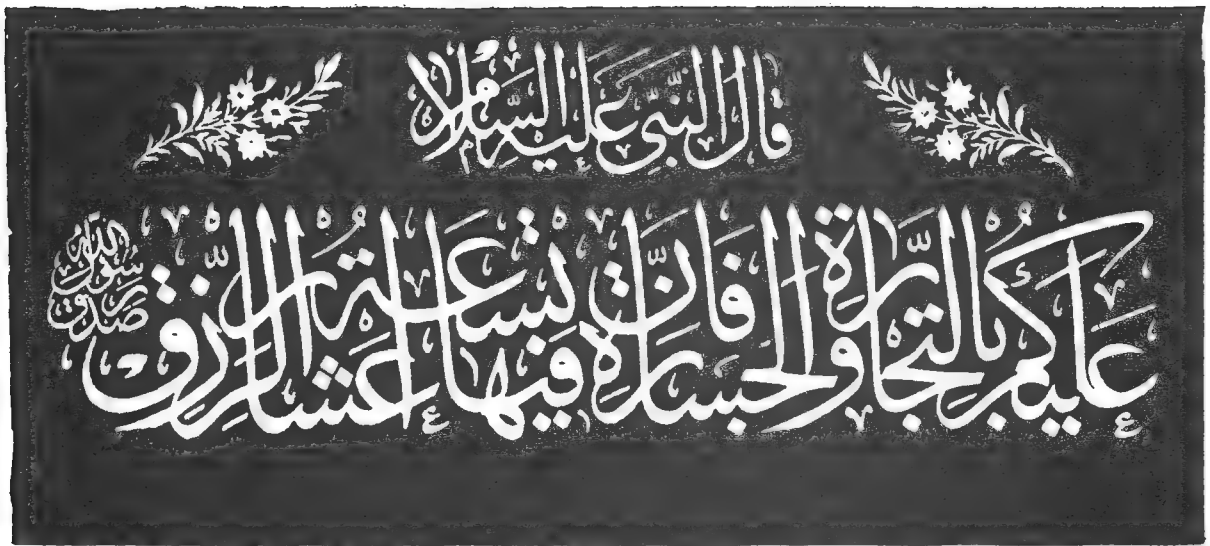 قَالَ النَّبِيُّ عَلَيْهِ السَّلَامُ
عَلَيْكُمْ بِالتِّجَارَةِ وَالْجَسَارَةِ فَاِنَّ فِيهَا تِسْعَةَ اَعْشَارِ الرِّزْقِ
صدق رسول الله